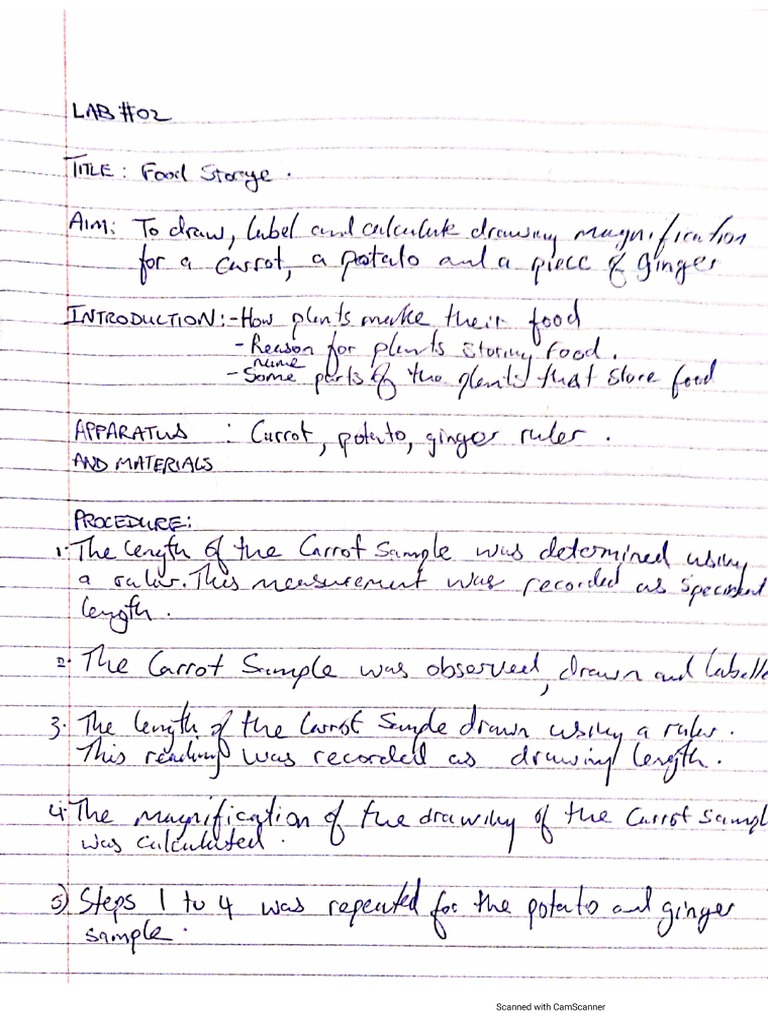 LAB #02
TITLE: Food Storage.
AIM: To draw, label and calculate drawing magnification
for a carrot, a potato and a piece of ginger
INTRODUCTION:- How plants make their food
- Reason for plants storing food.
name
- Some parts of the plants that store food
APPARATUS : Carrot, potato, ginger ruler.
AND MATERIALS
PROCEDURE:
1. The length of the Carrot Sample was determined using
a ruler. This measurement was recorded as specimen
length.
2. The Carrot Sample was observed, drawn and labelle
3. The length of the Carrot Sample drawn using a ruler.
This reading was recorded as drawing length.
4. The magnification of the drawing of the Carrot Sampl
was calculated.
5) Steps 1 to 4 was repeated for the potato and ginger
sample.
Scanned with CamScanner